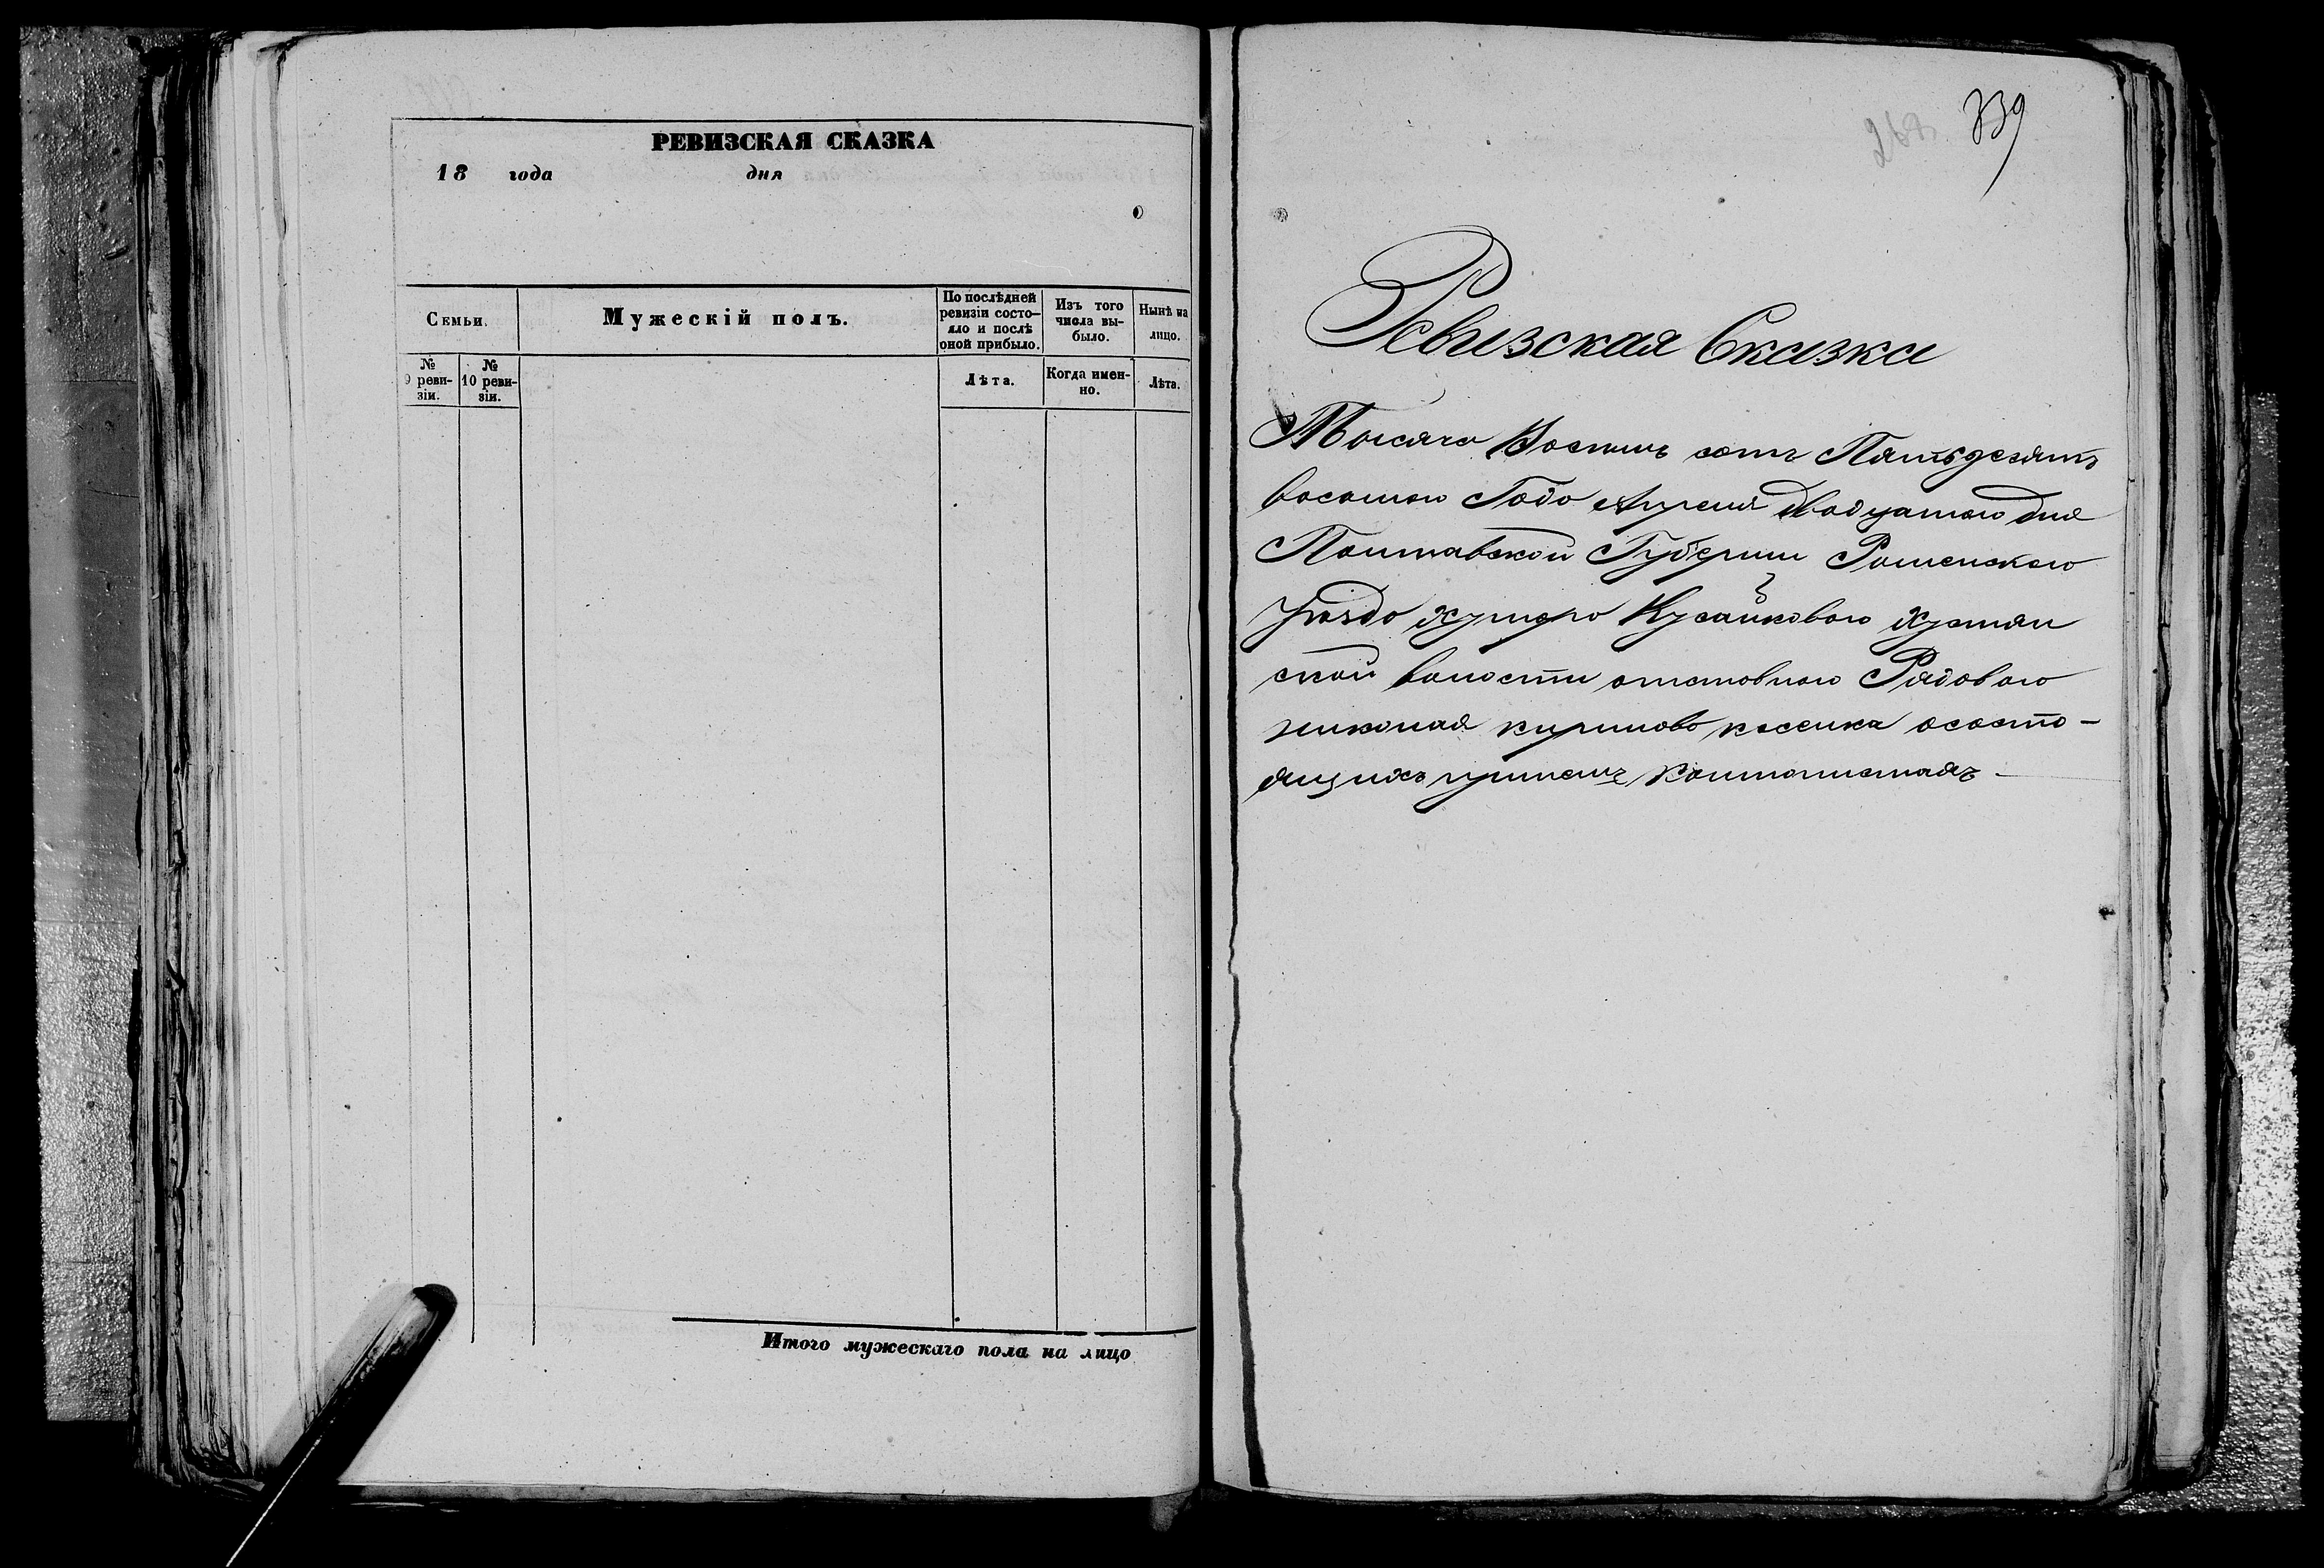 РЕВИЗСКАЯ СКАЗКА
18 года дня
Семьи.
Мужескій полъ.
По послѣдней
ревизіи состо-
яло и послѣ
оной прибыло.
Изъ того
числа вы-
было.
Нынѣ на
лицо.
№
9 реви-
зіи.
№
10 реви-
зіи.
Лѣта.
Когда имен-
но.
Лѣта.
Итого мужескаго пола на лицо
339
Ревизская Сказка
Тысяча Восемь сотъ Пятьдесятъ
восомого Года Апреля двадцатого дня
Полтавской Губернии Роменского
уезда хутора Кусайкового Хустян
ской волости отставного Рядового
николая кирилова косенка осасто-
ящихъ принемъ кантонистахъ